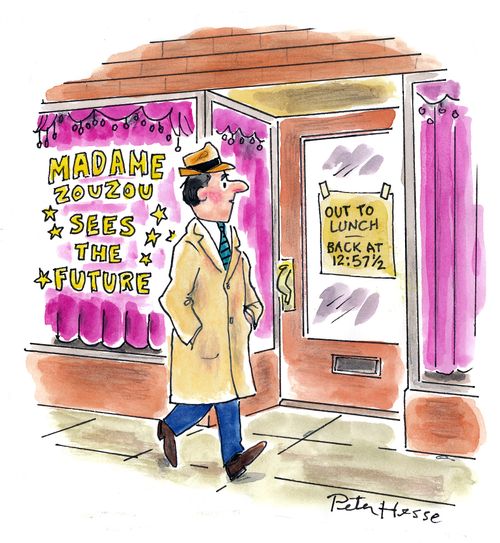 MADAME
ZOUZOU
SEES
THE
FUTURE
OUT TO
LUNCH
BACK AT
12:57½
Peter Hesse